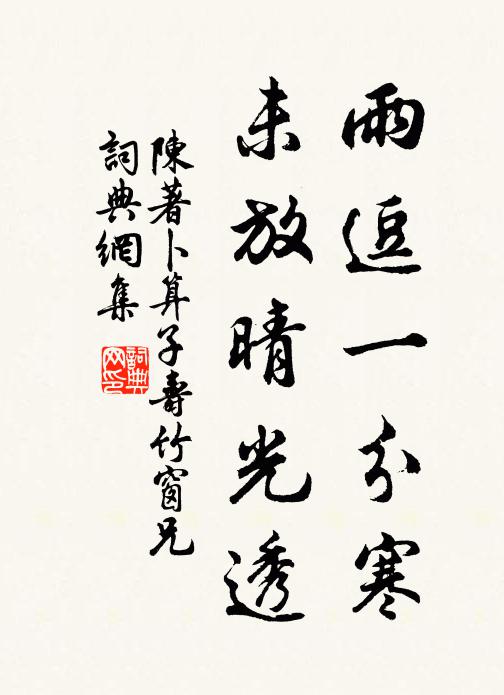 雨逗一分寒
未放晴光透
陳著卜算子壽竹窗兄
詞典網集
詞典網印